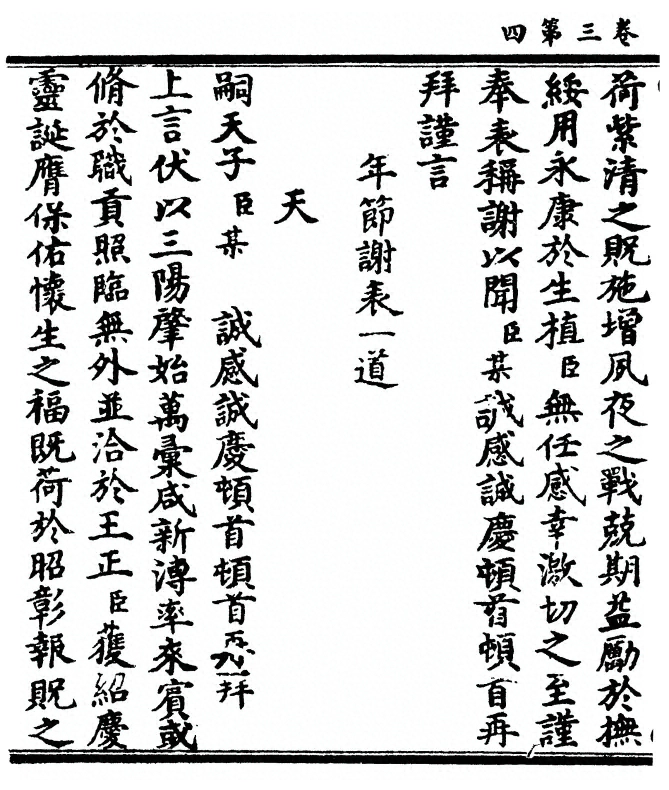 卷三第四
荷紫清之貺施增夙夜之戰兢期益勵於撫
綏用永康於生植臣無任感幸激切之至謹
奉表稱謝以聞臣某誠感誠慶頓首頓首再
拜謹言
年節謝表一道
天
嗣天子臣某 誠感誠慶頓首頓首再拜
上言伏以三陽肇始萬彙咸新溥率來賓或
脩於職貢照臨無外並洽於王正臣獲紹慶
靈誕膺保佑懷生之福既荷於昭彰報貺之